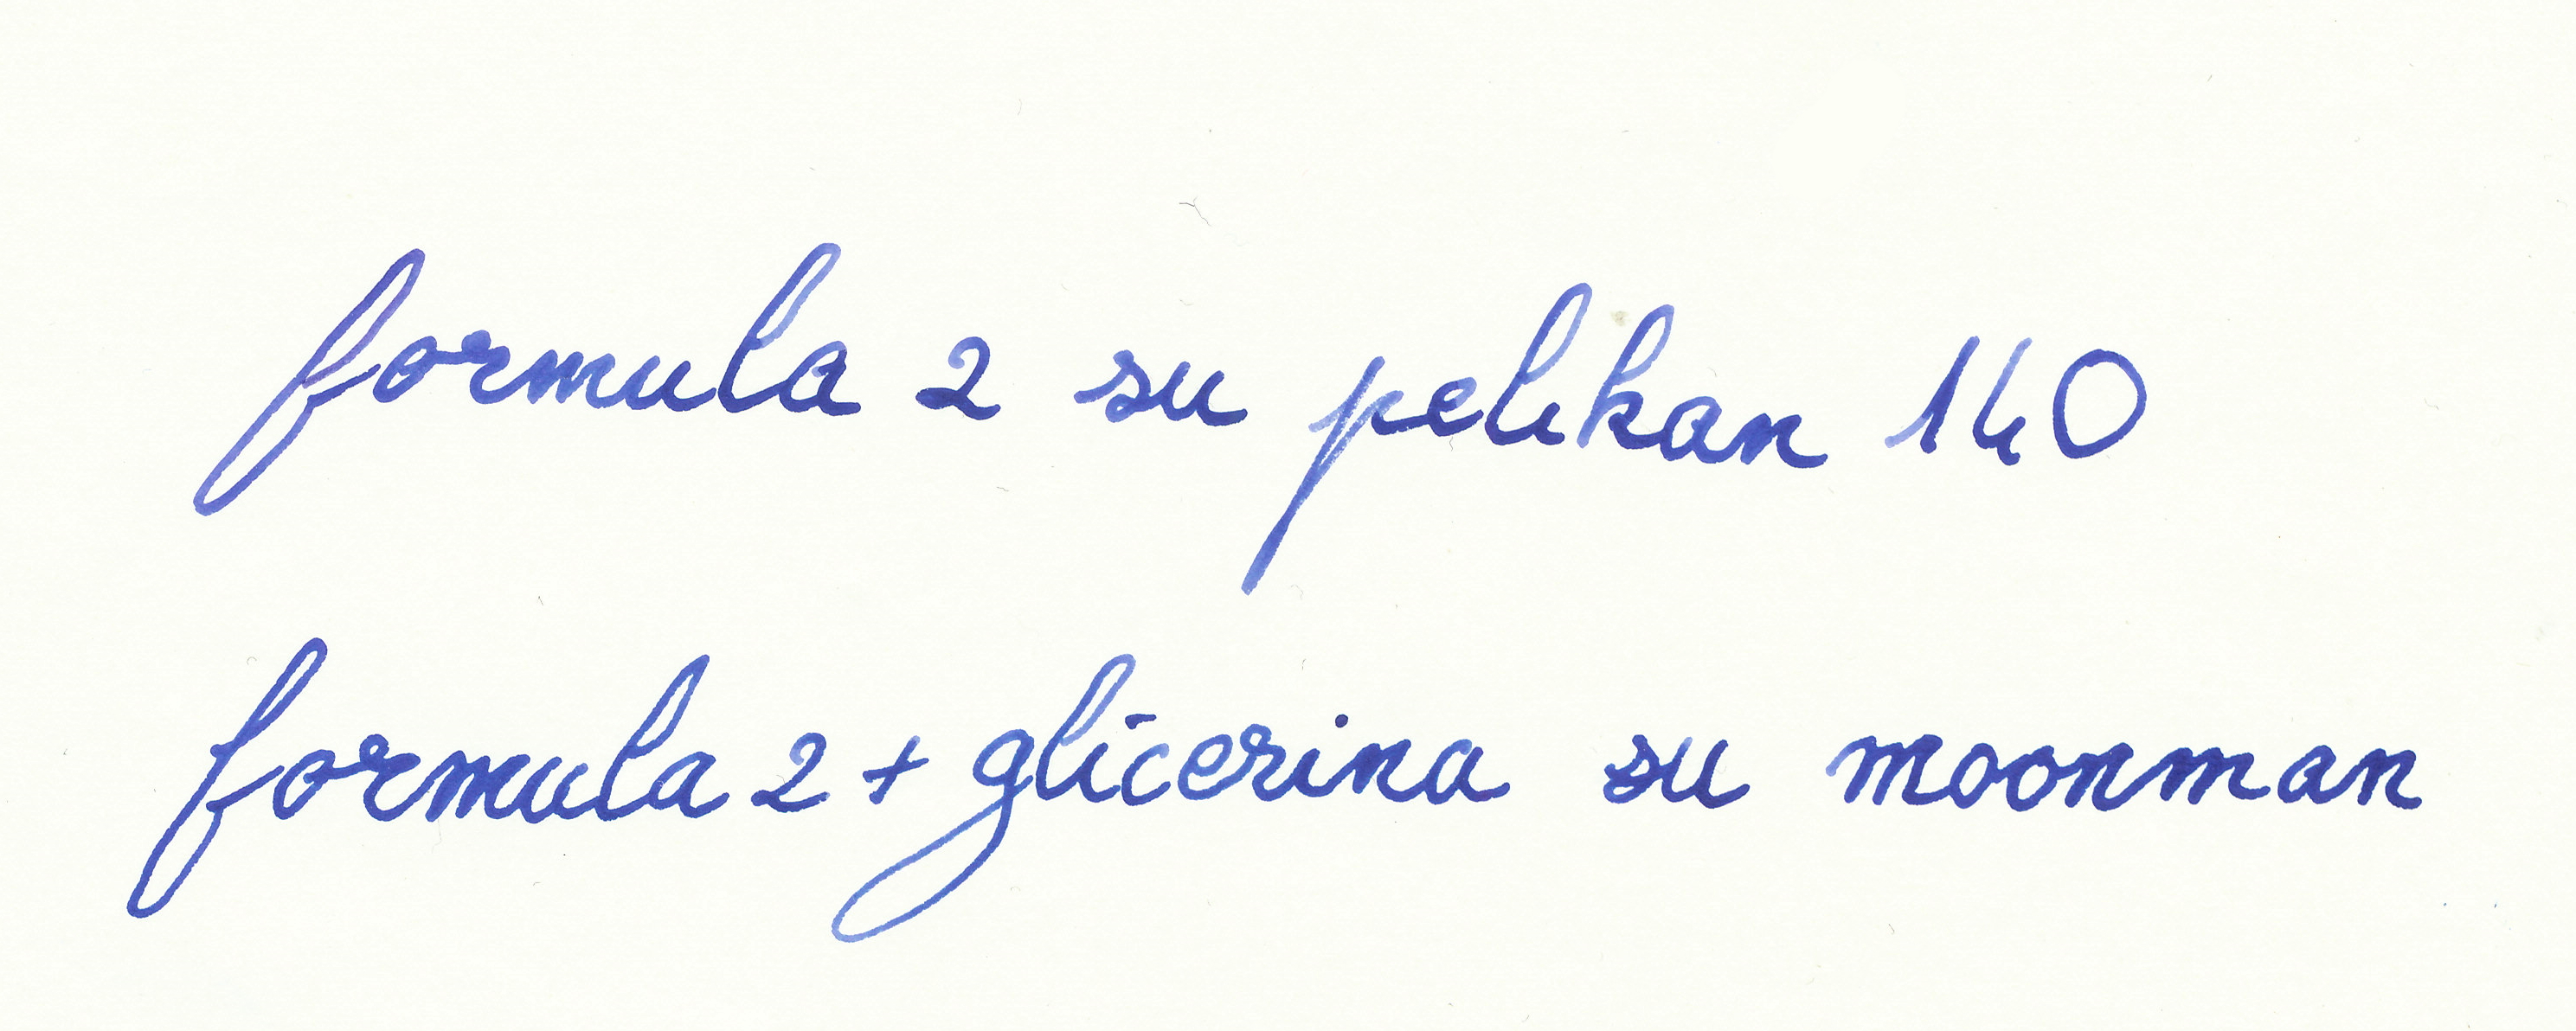 formula 2 su pelikan 140
formula 2 + glicerina su moonman